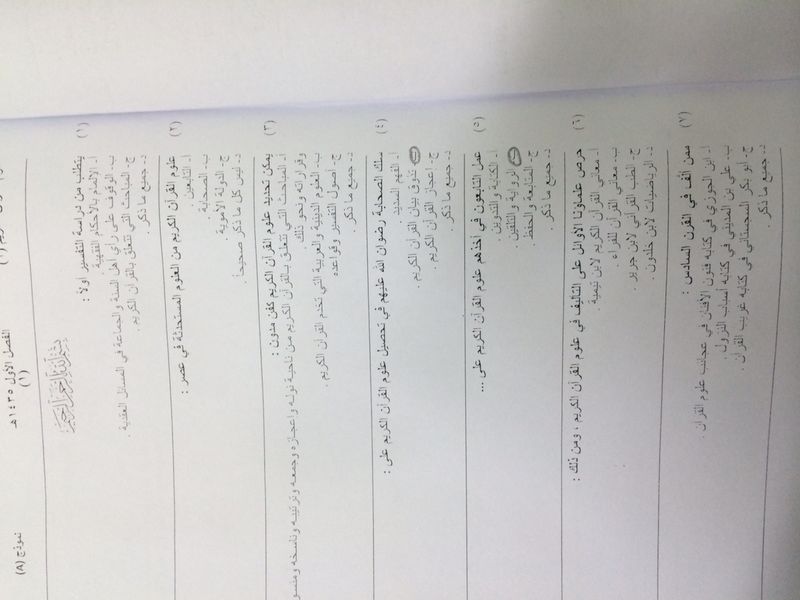 الفصل الأول ١٤٣٥ هـ
(١)
نموذج (A)
بسم الله الرحمن الرحيم
(١) يتطلب من دراسة التفسير أولاً :
أ. الإلمام بالأحكام الفقهية .
ب. الوقوف على رأي أهل السنة والجماعة في المسائل العقدية .
ج. المباحث التي تتعلق بالقرآن الكريم .
د. جميع ما ذكر .
(٢) علوم القرآن الكريم من العلوم المستحدثة في عصر :
أ. التابعين .
ب. الصحابة .
ج. الدولة الأموية .
د. ليس كل ما ذكر صحيحاً .
(٣) يمكن تحديد علوم القرآن الكريم كفن مدون :
أ. المباحث التي تتعلق بالقرآن الكريم من ناحية نزوله وإعجازه وجمعه وترتيبه وناسخه ومنسو
وقراءاته ونحو ذلك .
ب. العلوم الدينية والعربية التي تخدم القرآن الكريم .
ج. أصول التفسير وقواعده .
د. جميع ما ذكر .
(٤) سلك الصحابة رضوان الله عليهم في تحصيل علوم القرآن الكريم على :
أ. الفهم السديد .
ب. تذوق بيان القرآن الكريم .
ج. إعجاز القرآن الكريم .
د. جميع ما ذكر .
(٥) عمل التابعون في أخذهم علوم القرآن الكريم على ...
أ. الكتابة والتدوين .
ب. الرواية والتلقين .
ج. المتابعة والحفظ .
د. جميع ما ذكر .
(٦) حرص علماؤنا الأوائل على التأليف في علوم القرآن الكريم ، ومن ذلك :
أ. معاني القرآن الكريم لابن تيمية .
ب. معاني القرآن للفراء .
ج. الطب القرآني لابن جرير .
د. الرياضيات لابن خلدون .
(٧) ممن ألف في القرن السادس :
أ. ابن الجوزي في كتابه فنون الأفنان في عجائب علوم القرآن .
ب. علي بن المديني في كتابه أسباب النزول .
ج. أبو بكر السجستاني في كتابه غريب القرآن .
د. جميع ما ذكر .